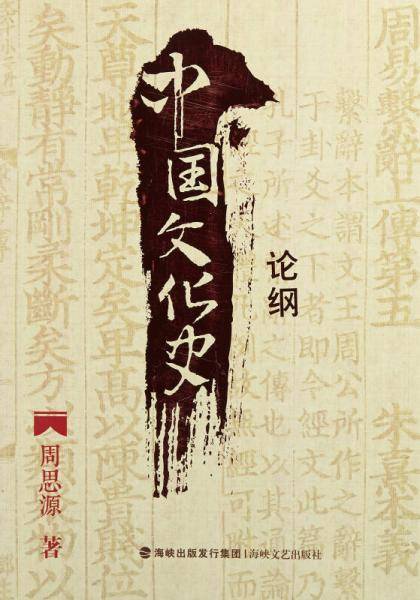 中国文化史
论纲
周思源 著
海峡出版发行集团 | 海峡文艺出版社
周易繫辭上傳第五 朱熹本義
繫辭本謂文王周公所作之辭繫
于卦爻之下者即今經文此
孔子所述 之傳也以 通論
無經可附
天尊地卑乾坤定矣卑高以陳貴賤位
矣動靜有常剛柔斷矣方